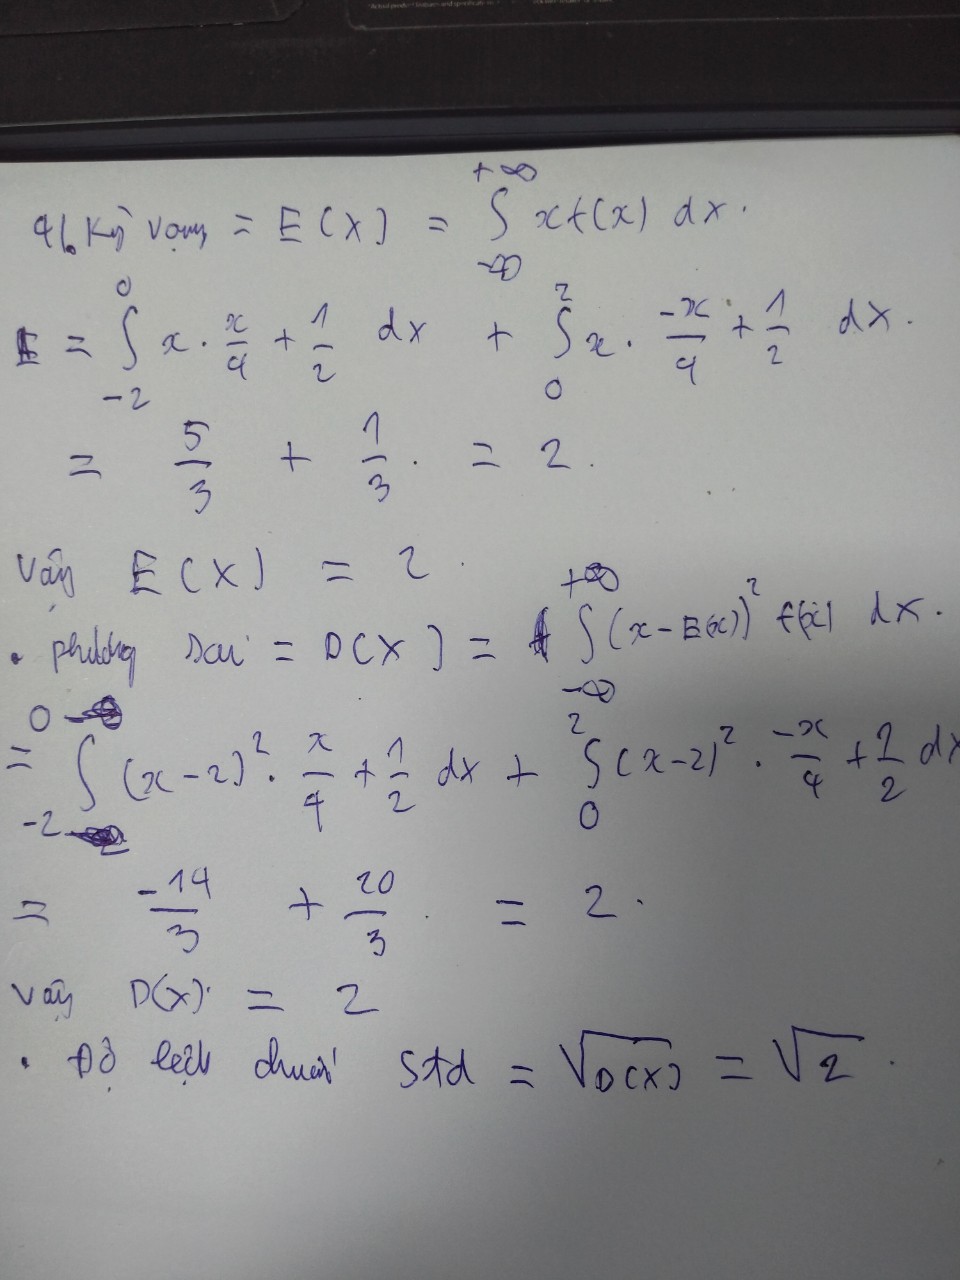 4/. Kỳ vọng = E(X) = ∫_{-∞}^{+∞} x f(x) dx.
E = ∫_{-2}^{0} x . x/4 + 1/2 dx + ∫_{0}^{2} x . -x/4 + 1/2 dx.
= 5/3 + 1/3 . = 2.
Vậy E(X) = 2.
• phương sai = D(X) = ∫_{-∞}^{+∞} (x - E(x))² f(x) dx.
= ∫_{-2}^{0} (x-2)² . x/4 + 1/2 dx + ∫_{0}^{2} (x-2)² . -x/4 + 1/2 dx
= -14/3 + 20/3 . = 2.
Vậy D(X) = 2
• Độ lệch chuẩn Std = √D(X) = √2.